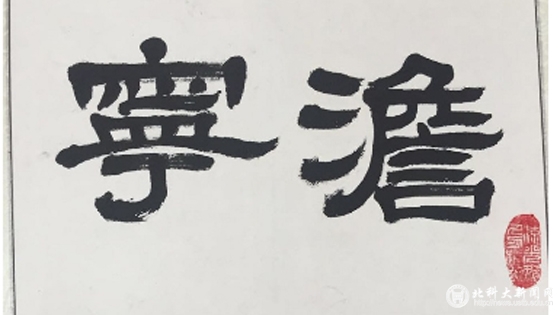 澹寧
北科大新闻网